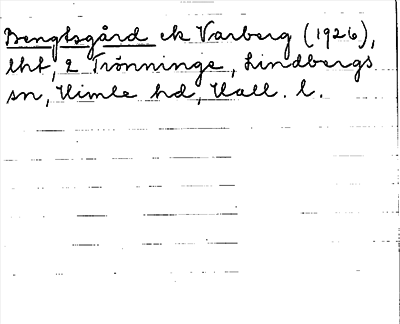 Bengtsgård ek Varberg (1926),
lht, 2 Trönninge, Lindbergs
sn, Himle hd, Hall. l.